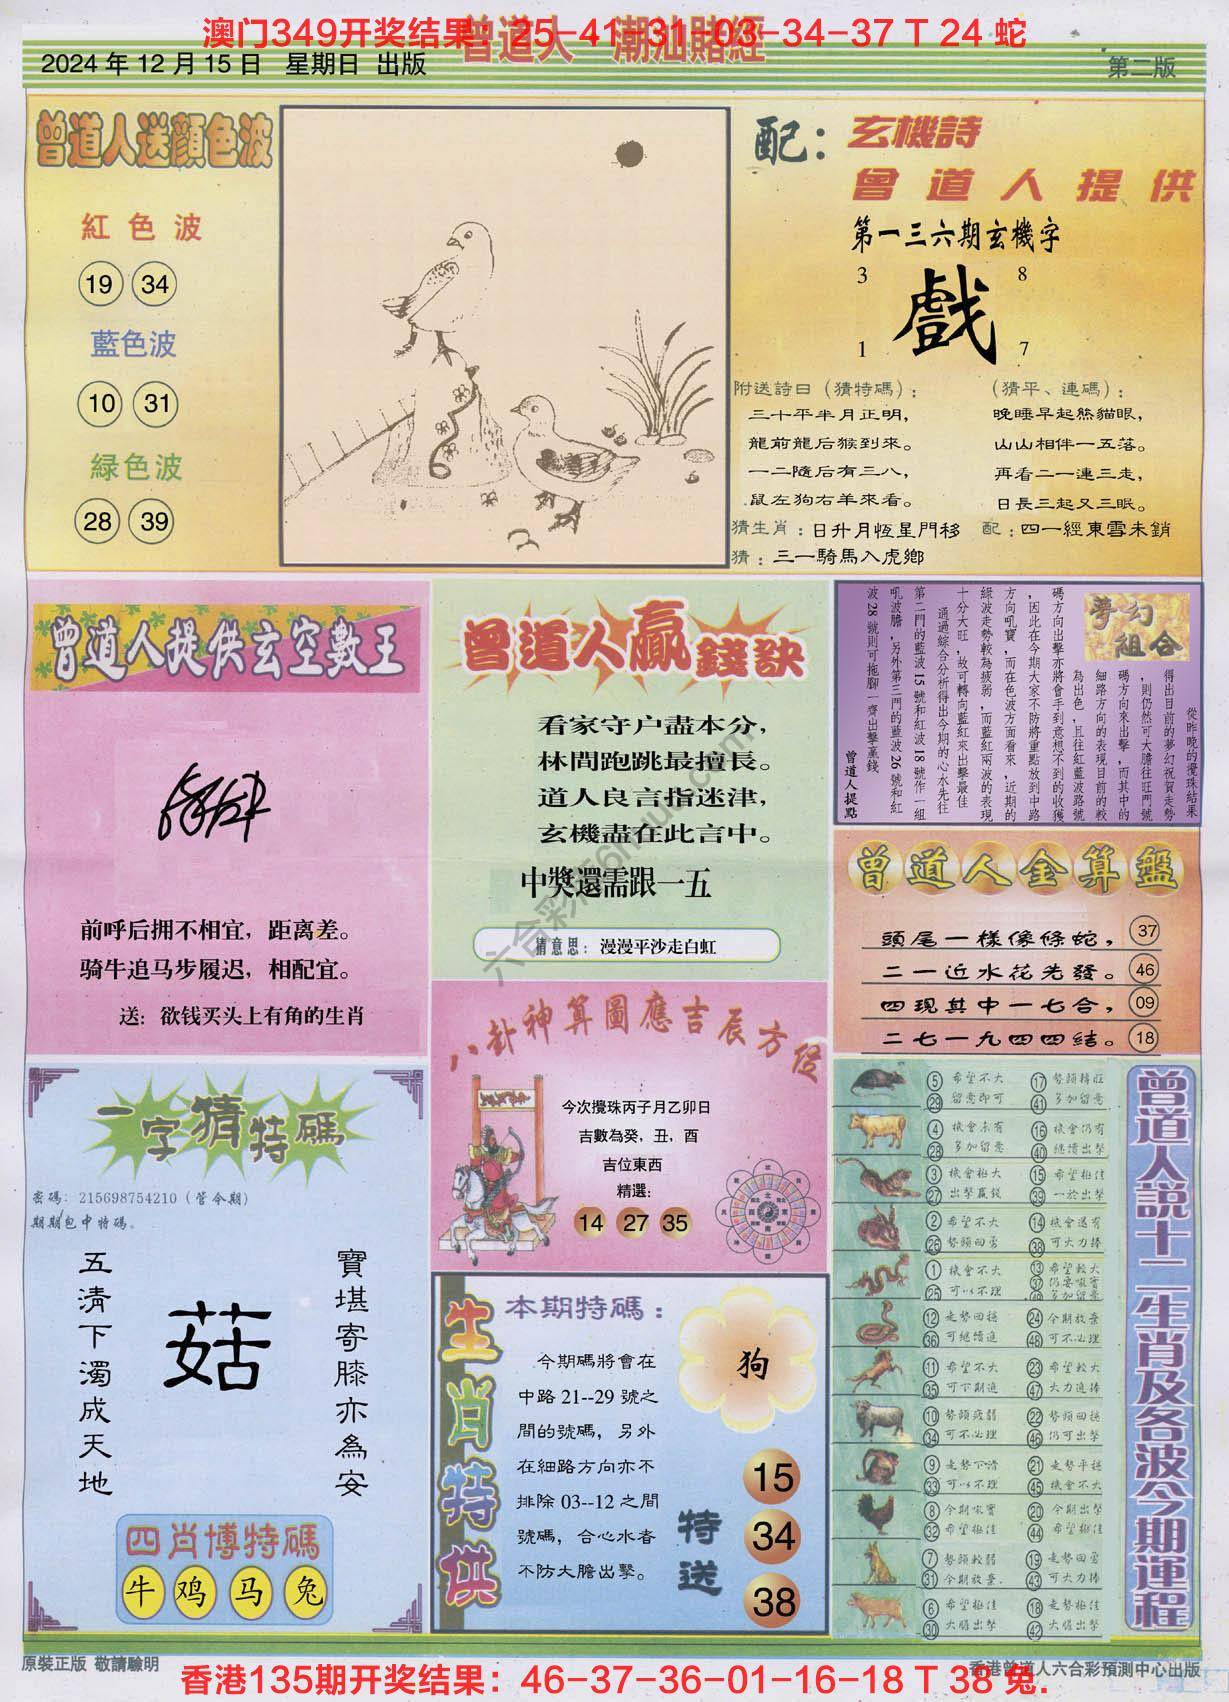 澳门349开奖结果：25-41-31-03-34-37 T 24 蛇
曾道人 潮汕賭經
2024 年 12 月 15 日 星期日 出版
第二版
曾道人送顔色波
紅色波
19 34
藍色波
10 31
緑色波
28 39
配：玄機詩
曾道人提供
第一三六期玄機字
3 8
戲
1 7
附送詩曰（猜特碼）：
三十平半月正明，
龍前龍后猴到來。
一二隨后有三八，
鼠左狗右羊來看。
（猜平、連碼）：
晚睡早起熊貓眼，
山山相伴一五落。
再看二一連三走，
日長三起又三眠。
猜生肖：日升月恆星門移 配：四一經東雪未銷
猜：三一騎馬入虎鄉
曾道人提供玄空數王
前呼后拥不相宜，距离差。
骑牛追马步履迟，相配宜。
送：欲钱买头上有角的生肖
曾道人贏錢訣
看家守户盡本分，
林間跑跳最擅長。
道人良言指迷津，
玄機盡在此言中。
中獎還需跟一五
猜意思：漫漫平沙走白虹
夢幻組合
從昨晚的攪珠結果
得出目前的夢幻祝賀走勢
，則仍然可大膽往旺門號
碼方向來出擊，而其中的
細路方向的表現目前的較
為出色，且往紅藍波路號
碼方向出擊亦將會手到意想不到的收獲
，因此在今期大家不防將重點放到中路
方向吼寶，而在色波方面看來，近期的
綠波走勢較為疲弱，而藍紅兩波的表現
十分大旺，故可轉向藍紅來出擊最佳
通過綜合分析得出今期的心水先往
第二門的藍波 15 號和紅波 18 號作一組
吼波膽，另外第三門的藍波 26 號和紅
波 28 號則可拖腳一齊出擊贏錢
曾道人提點
曾道人金算盤
頭尾一樣像條蛇， 37
二一近水花先發。 46
四現其中一七合， 09
二七一九四四結。 18
八卦神算圖應吉辰方位
今次攪珠丙子月乙卯日
吉數為癸，丑，酉
吉位東西
精選：
14 27 35
一字猜特碼
密碼：215698754210（管令期）
期期包中特碼。
寶堪寄膝亦為安
菇
五清下濁成天地
四肖博特碼
牛 鸡 马 兔
生肖特供
本期特碼：
狗
今期碼將會在
中路 21--29 號之
間的號碼，另外
在細路方向亦不
排除 03--12 之間
號碼，合心水者
不防大膽出擊。
特送
15
34
38
曾道人説十二生肖及各波今期運程
5 29 希望不大 留意即可 17 41 勢頭轉旺 多加留意
4 28 機會未有 多加留意 16 40 機會仍有 繼續出擊
3 27 機會極大 出擊贏錢 15 39 希望極佳 一於出擊
2 26 希望不大 勢頭回勇 14 38 機會還有 可大力捧
1 25 機會不大 可以不理 13 37 希望較大 多加留意
12 36 走勢回穩 可繼續追 24 48 今期放棄 可不必理
11 35 希望不大 可下期追 23 47 希望較大 大力追捧
10 34 勢頭疲弱 可不必理 22 46 勢頭回穩 仍可出擊
9 33 走勢下滑 可以不理 21 45 走勢平穩 機會不大
8 32 今期吼寶 希望極佳 20 44 今期出擊 希望極佳
7 31 勢頭較弱 今期放棄. 19 43 走勢回勇 可大力捧
6 30 希望極佳 大膽出擊 18 42 走勢極佳 大膽出擊
原裝正版 敬請驗明
香港曾道人六合彩預測中心出版
香港135期开奖结果：46-37-36-01-16-18 T 38 兔.